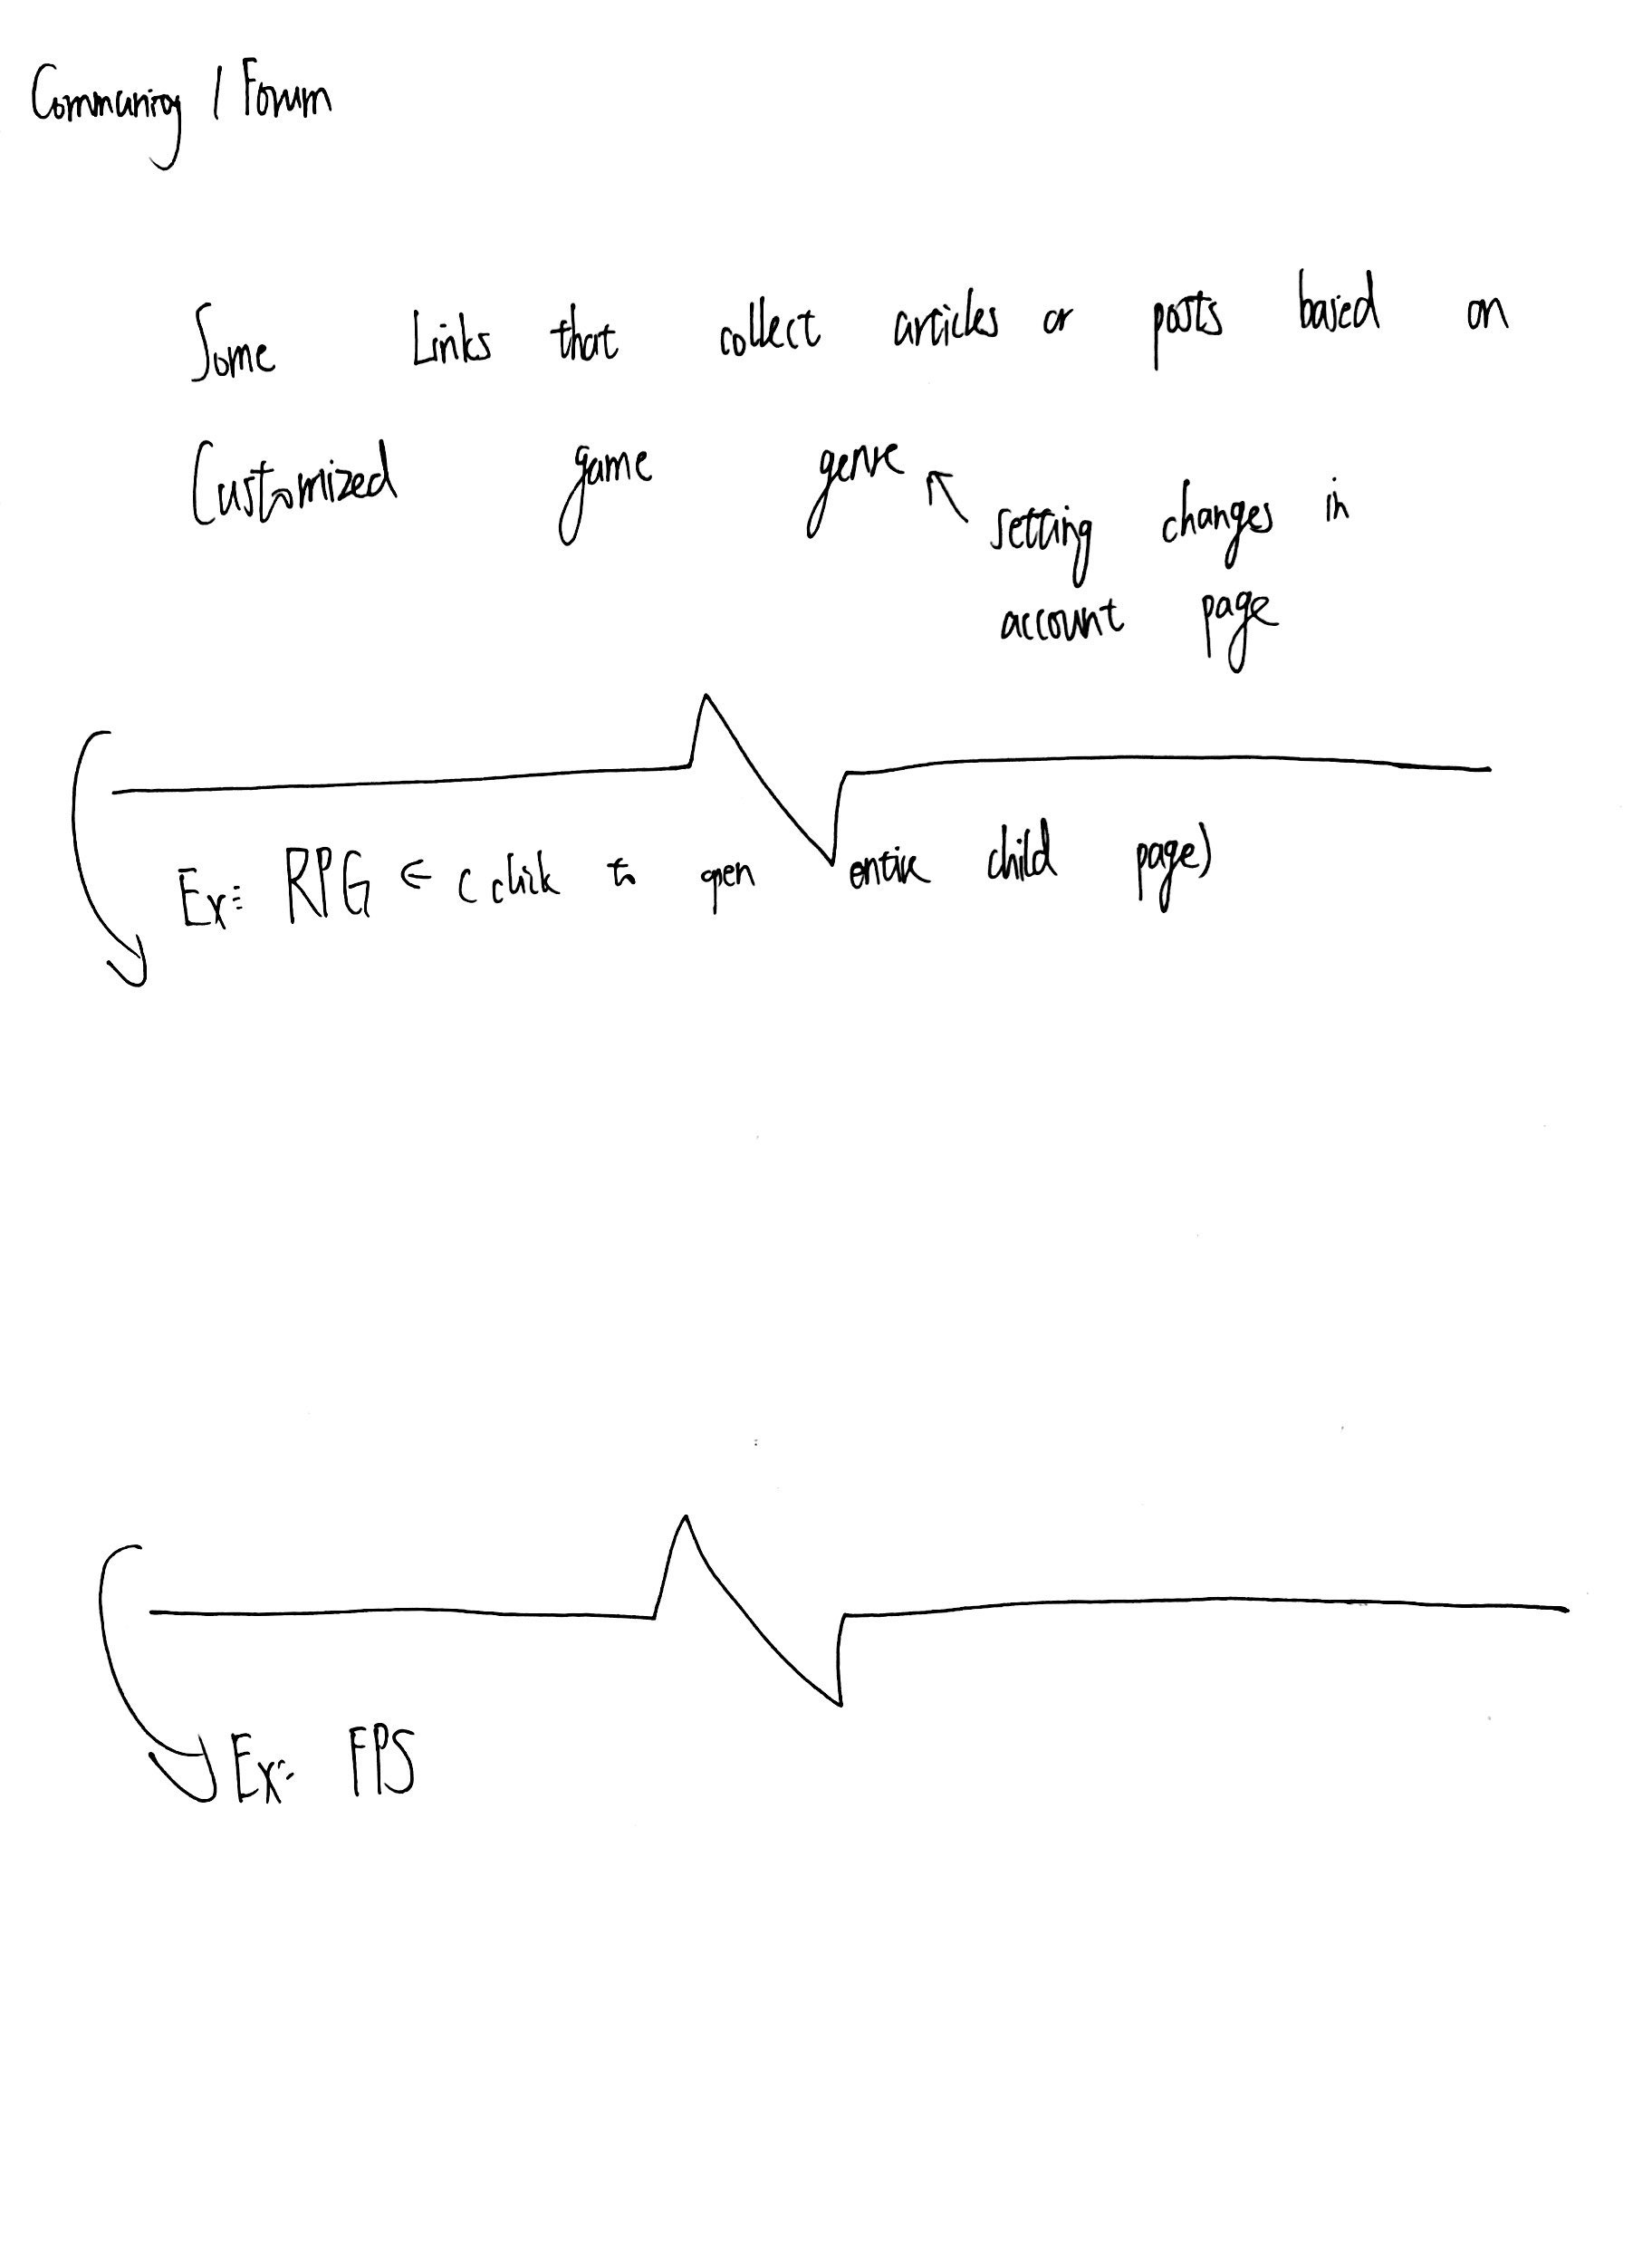 Community / Forum
Some Links that collect articles or posts based on
Customized game genre ↖ setting changes in
account page
Ex: RPG ← (click to open entire child page)
Ex: FPS